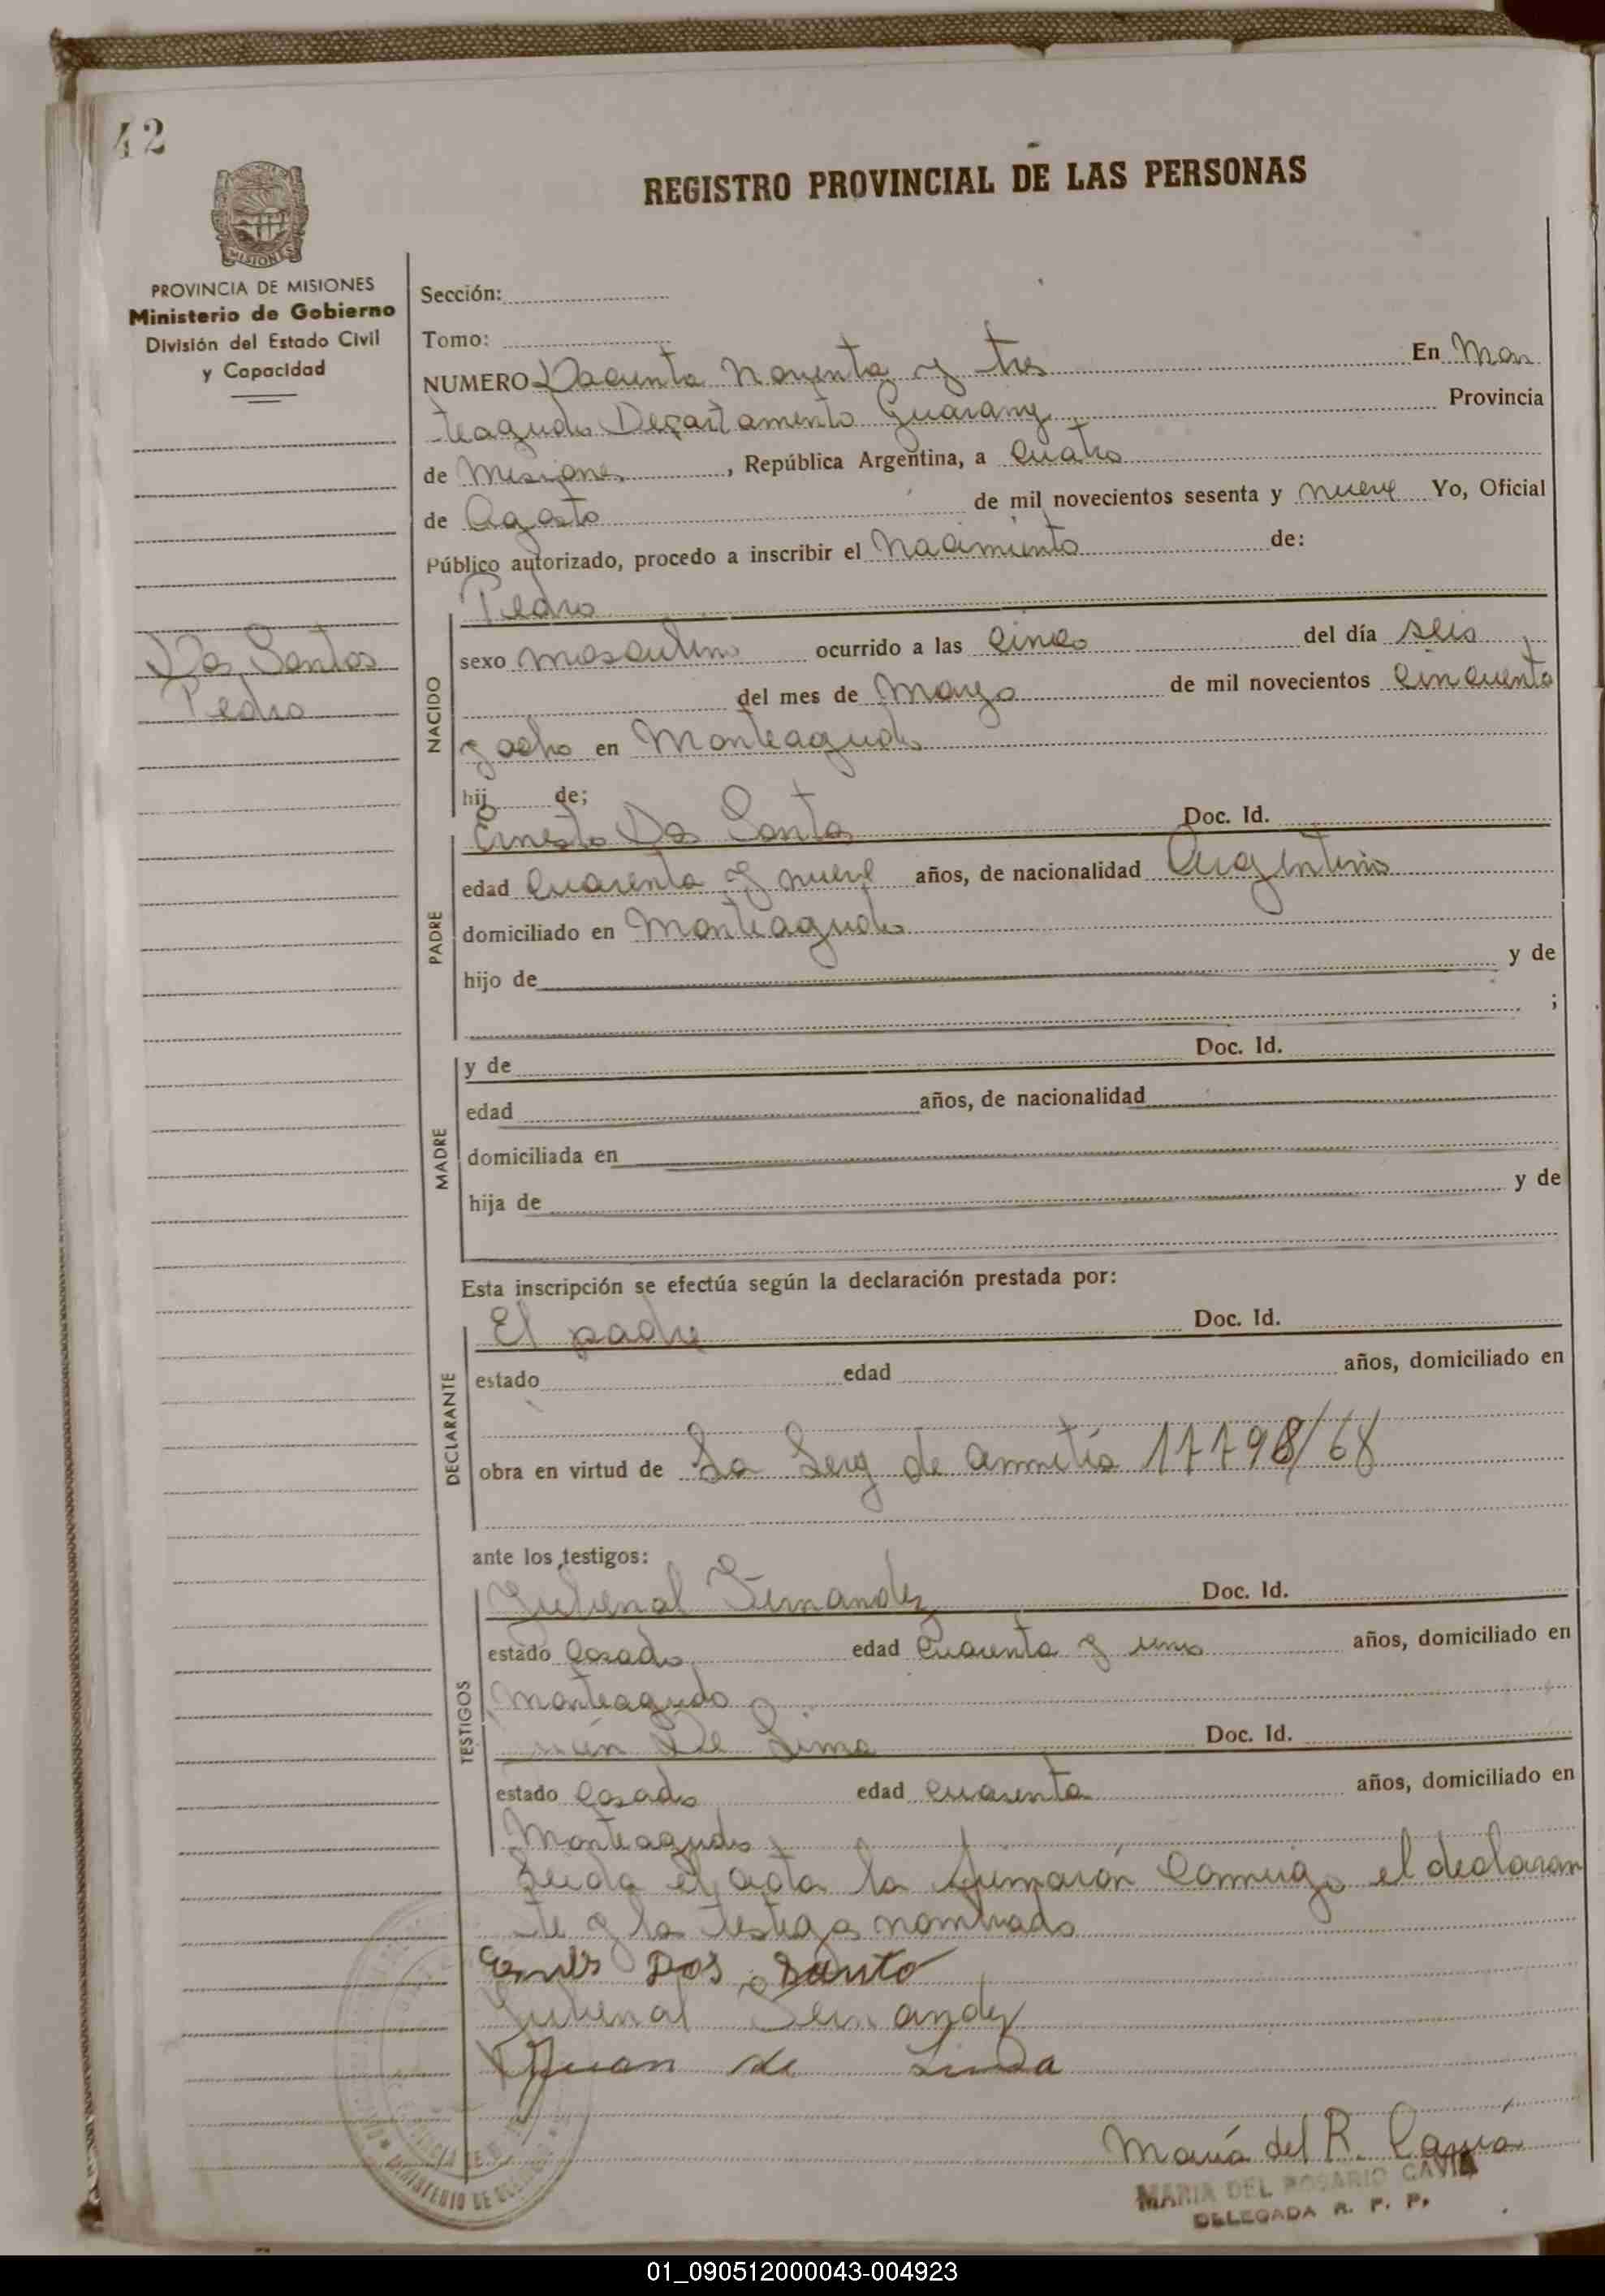 42
MISIONES
REGISTRO PROVINCIAL DE LAS PERSONAS
PROVINCIA DE MISIONES
Ministerio de Gobierno
División del Estado Civil
y Capacidad
Sección:
Tomo:
NUMERO Docienta noventa y tres En Mon
teagudo Departamento Guarany Provincia
de Misiones, República Argentina, a cuatro
de Agosto de mil novecientos sesenta y nueve Yo, Oficial
Público autorizado, procedo a inscribir el Nacimiento de:
Dos Santos
Pedro
NACIDO
Pedro
sexo masculino ocurrido a las cinco del día seis
del mes de Marzo de mil novecientos cincuenta
y ocho en Monteagudo
hijo de;
PADRE
Ernesto Dos Santos Doc. Id.
edad cuarenta y nueve años, de nacionalidad Argentino
domiciliado en Monteagudo
hijo de y de
;
MADRE
y de Doc. Id.
edad años, de nacionalidad
domiciliada en
hija de y de
Esta inscripción se efectúa según la declaración prestada por:
DECLARANTE
El padre Doc. Id.
estado edad años, domiciliado en
obra en virtud de La Ley de amnitia 17798/68
ante los testigos:
TESTIGOS
Jubenal Fernandez Doc. Id.
estado Casado edad cuarenta y uno años, domiciliado en
Monteagudo
De Lima Doc. Id.
estado Casado edad cuarenta años, domiciliado en
Monteagudo
Leida el acta la firmarón Conmigo el declaran
te y los testigos nombrado
Dos Santo
Jubenal Fernandez
Juan de Lima
María del R. Cavia
MARIA DEL ROSARIO CAVIA
DELEGADA R. P. P.
MINISTERIO DE
01_090512000043-004923